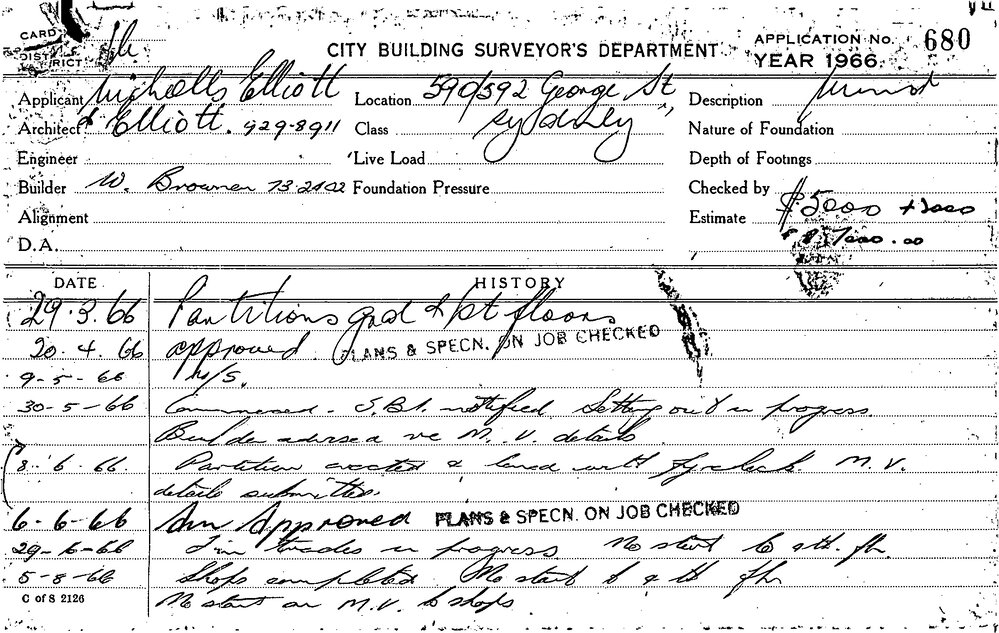 CARD
DISTRICT
CITY BUILDING SURVEYOR'S DEPARTMENT.
APPLICATION No. 680
YEAR 1966
Applicant Nicholls Elliott
Location 590/592 George St
Description
Architect & Elliott. 929-8911
Class Sydney
Nature of Foundation
Engineer
Live Load
Depth of Footings
Builder W. Browner
Foundation Pressure
Checked by
Alignment
Estimate $5000 +2000
D.A.
$7000.00
DATE
HISTORY
29.3.66 Partitions grd & 1st floors
20.4.66 approved. PLANS & SPECN. ON JOB CHECKED
9-5-66 N/S.
30-5-66 Commenced. S.B.I. notified. Setting out in progress.
Builder advised re M.V. details
8.6.66. Partition erected & lined with Fyrchek. M.V.
details submitted.
6-6-66 Am Approved PLANS & SPECN. ON JOB CHECKED
29-6-66 Fin trades in progress No start to 9th. flr
5-8-66 Shops completed No start to 9th flr
C of S 2126
No start on M.V. to shops